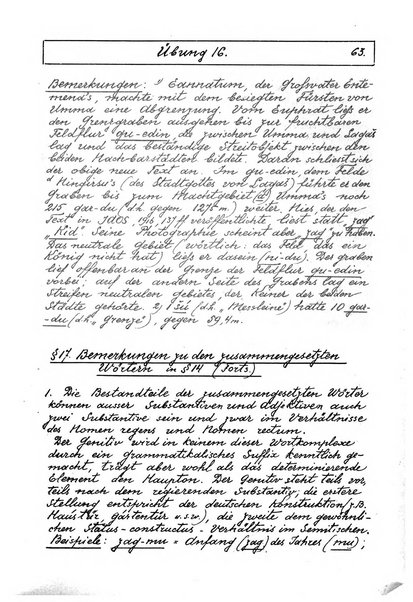 Übung 16. 63.
Bemerkungen: 1) Eannatum, der Großvater Ente-
mena's, machte mit dem besiegten Fürsten von
Umma eine Abgrenzung. Vom Euphrat ließ er
den Grenzgraben ausgehen bis zur fruchtbaren
Feldflur gu-edin, die zwischen Umma und Lagaš
lag und das beständige Streitobjekt zwischen den
beiden Nachbarstädten bildet. Daran schliesst sich
der obige neue Text an. Im gu-edin, dem Felde
Ningirsu's (des Stadtgottes von Lagaš) führte er den
Graben bis zum Machtgebiet (á) Umma's noch
215 gar-du (d.h. gegen 1275 m) weiter. Nies, der den
Text in JAOS. 1916, 137 ff veröffentlichte liest statt zag
"Kid". Seine Photographie scheint aber zag zu haben.
Das neutrale Gebiet (wörtlich: das Feld das ein
König nicht hat) ließ er dasein (ni-du). Der Graben
lief offenbar an der Grenze der Feldflur gu-edin
vorbei; auf der andern Seite des Grabens lag ein
Streifen neutralen Gebietes, der keiner der beiden
Städte gehörte. 2) (d.h. "Messleine") hatte 10 gar-
du (d.h. "Grenze"), gegen 59,4 m.
§ 17. Bemerkungen zu den zusammengesetzten
Wörtern in § 14 (Forts.)
1. Die Bestandteile der zusammengesetzten Wörter
können ausser Substantiven und Adjektiven auch
zwei Substantive sein und zwar im Verhältnisse
des Nomen regens und Nomen rectum.
Der Genitiv wird in keinem dieser Wortkomplexe
durch ein grammatikalisches Suffix kenntlich ge-
macht, trägt aber wohl als das determinierende
Element den Hauptton. Der Genitiv steht teils vor,
teils nach dem regierenden Substantiv; die erstere
Stellung entspricht der deutschen Konstruktion (z.B.
Haustür, Gartentür u.s.w.), die zweite dem gewöhnli-
chen Status-constructus-Verhältnis im Semitischen.
Beispiele: zag-mu = Anfang (zag) des Jahres (mu);